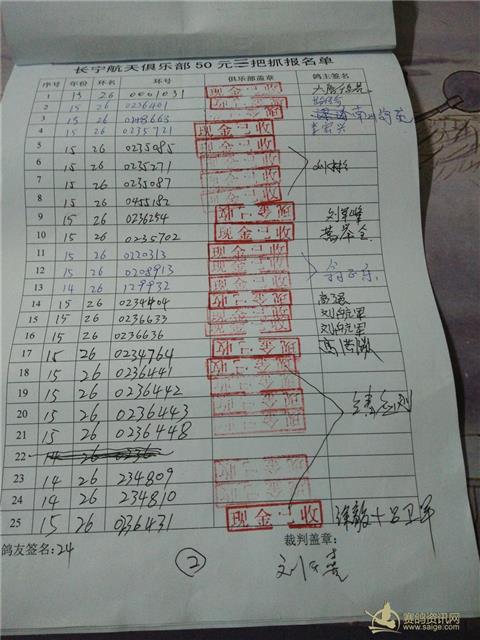 长宁航天俱乐部50元三把抓报名单
序号 年份 环名 环号 俱乐部盖章 鸽主签名
1 15 26 0001031 现金已收
2 15 26 0236401 现金已收
3 15 26 0248663 现金已收
4 15 26 0235721 现金已收
5 15 26 0235085 现金已收
6 15 26 0235271 现金已收
7 15 26 0235087 现金已收
8 15 26 0455182 现金已收
9 15 26 0236254 现金已收 刘军峰
10 15 26 0235702 现金已收
11 15 26 0220313 现金已收
12 15 26 0208913 现金已收
13 14 26 129932 现金已收
14 15 26 0234404 现金已收
15 15 26 0236633 现金已收 刘向军
16 15 26 0236636 现金已收 刘向军
17 15 26 0234764 现金已收
18 15 26 0236441 现金已收
19 15 26 0236442 现金已收
20 15 26 0236443 现金已收
21 15 26 0236448
22 14 26 0236
23 14 26 234809 现金已收
24 14 26 234810 现金已收
25 15 26 0236431 现金已收 徐毅+吕卫军
鸽友签名:24 ② 裁判盖章:
赛鸽资讯网
www.saige.com